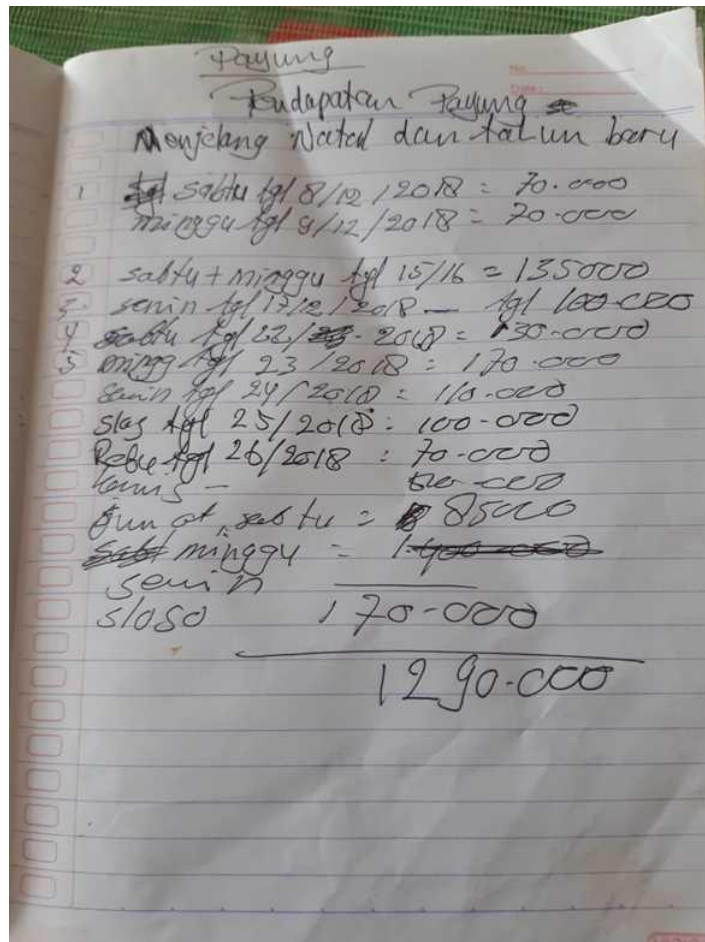 Payung
Pendapatan Payung
Menjelang Natal dan tahun baru
1 sabtu tgl 8/12/2018 = 70.000
minggu tgl 9/12/2018 = 70.000
2 sabtu + minggu tgl 15/16 = 135000
3 senin tgl 17/12/2018 — tgl 100.000
4 sabtu tgl 22/ - 2018 = 130.000
5 mingg tgl 23/2018 = 170.000
senin tgl 24/2018 = 110.000
slas tgl 25/2018 : 100-000
Rebu tgl 26/2018 : 70-000
kamis -
Jum at, sabtu = 85000
minggu =
senin
sloso 170-000
1290.000